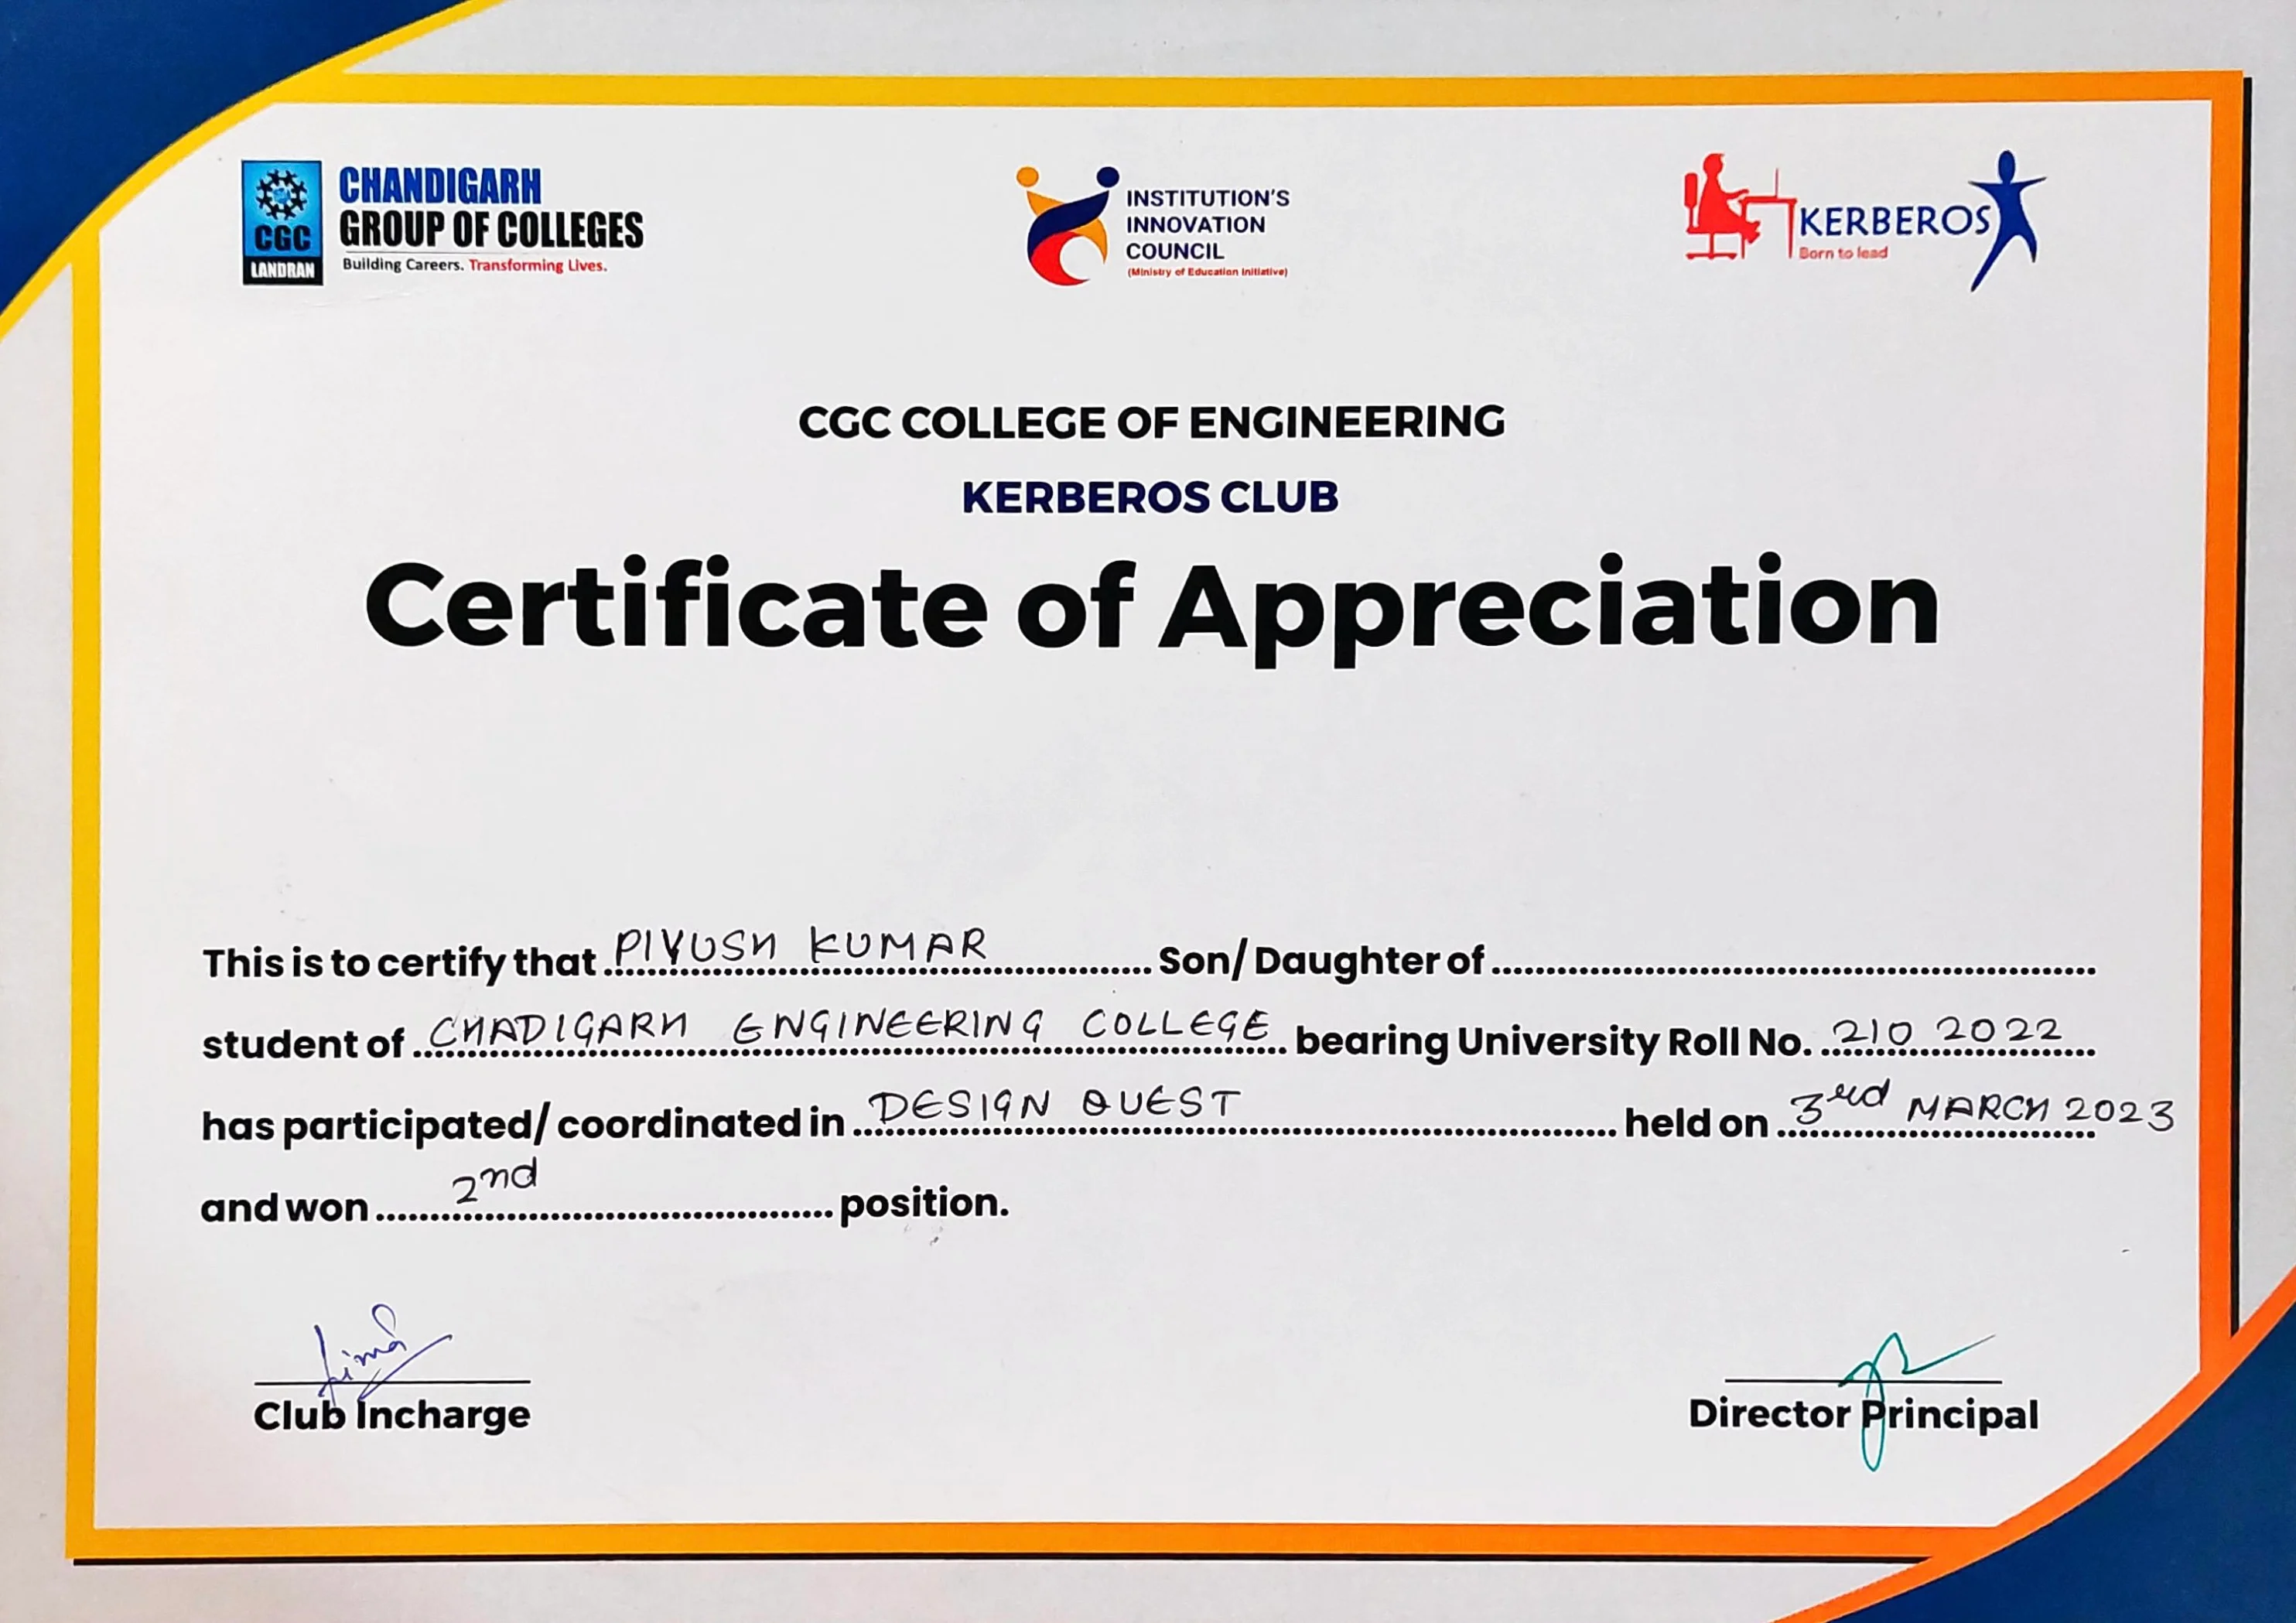 CHANDIGARH
GROUP OF COLLEGES
Building Careers. Transforming Lives.
CGC
LANDRAN
INSTITUTION'S
INNOVATION
COUNCIL
(Ministry of Education Initiative)
KERBEROS
Born to lead
CGC COLLEGE OF ENGINEERING
KERBEROS CLUB
Certificate of Appreciation
This is to certify that PIYUSH KUMAR Son/ Daughter of
student of CHADIGARH ENGINEERING COLLEGE bearing University Roll No. 210 2022
has participated/ coordinated in DESIGN QUEST held on 3rd MARCH 2023
and won 2nd position.
Club Incharge
Director Principal